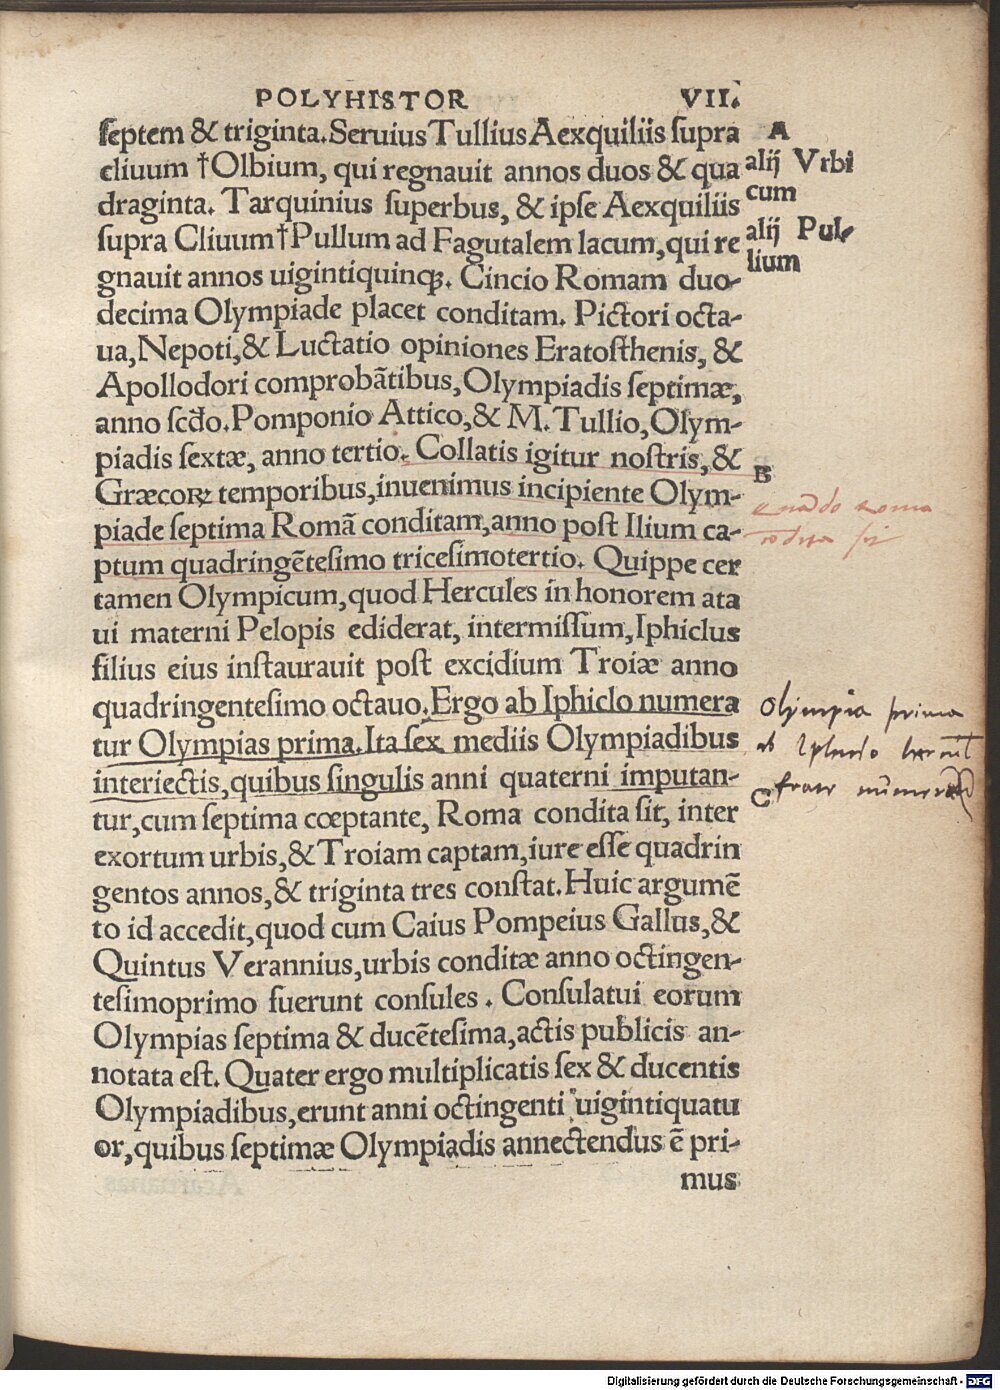 POLYHISTOR VII.
ſeptem & triginta. Seruius Tullius Aexquiliis ſupra
cliuum †Olbium, qui regnauit annos duos & qua
draginta. Tarquinius ſuperbus, & ipſe Aexquiliis
ſupra Cliuum †Pullum ad Fagutalem lacum, qui re
gnauit annos uigintiquinqꝫ. Cincio Romam duo-
decima Olympiade placet conditam. Pictori octa-
ua, Nepoti, & Luctatio opiniones Eratoſthenis, &
Apollodori comprobātibus, Olympiadis ſeptimæ,
anno ſcd̄o. Pomponio Attico, & M. Tullio, Olym-
piadis ſextæ, anno tertio. Collatis igitur noſtris, &
Græcoꝝ temporibus, inuenimus incipiente Olym-
piade ſeptima Romā conditam, anno poſt Ilium ca-
ptum quadringēteſimo triceſimotertio. Quippe cer
tamen Olympicum, quod Hercules in honorem ata
ui materni Pelopis ediderat, intermiſſum, Iphiclus
filius eius inſtaurauit poſt excidium Troiæ anno
quadringenteſimo octauo. Ergo ab Iphiclo numera
tur Olympias prima. Ita ſex mediis Olympiadibus
interiectis, quibus ſingulis anni quaterni imputan-
tur, cum ſeptima cœptante, Roma condita ſit, inter
exortum urbis, & Troiam captam, iure eſſe quadrin
gentos annos, & triginta tres conſtat. Huic argumē
to id accedit, quod cum Caius Pompeius Gallus, &
Quintus Verannius, urbis conditæ anno octingen-
teſimoprimo fuerunt conſules. Conſulatui eorum
Olympias ſeptima & ducēteſima, actis publicis an-
notata eſt. Quater ergo multiplicatis ſex & ducentis
Olympiadibus, erunt anni octingenti uigintiquatu
or, quibus ſeptimæ Olympiadis annectendus ē pri-
mus
A
alij Vrbi
cum
alij Pul-
lium
B
Roma
sit
Olympia prima
ab Iphiclo
C
Digitalisierung gefördert durch die Deutsche Forschungsgemeinschaft - DFG